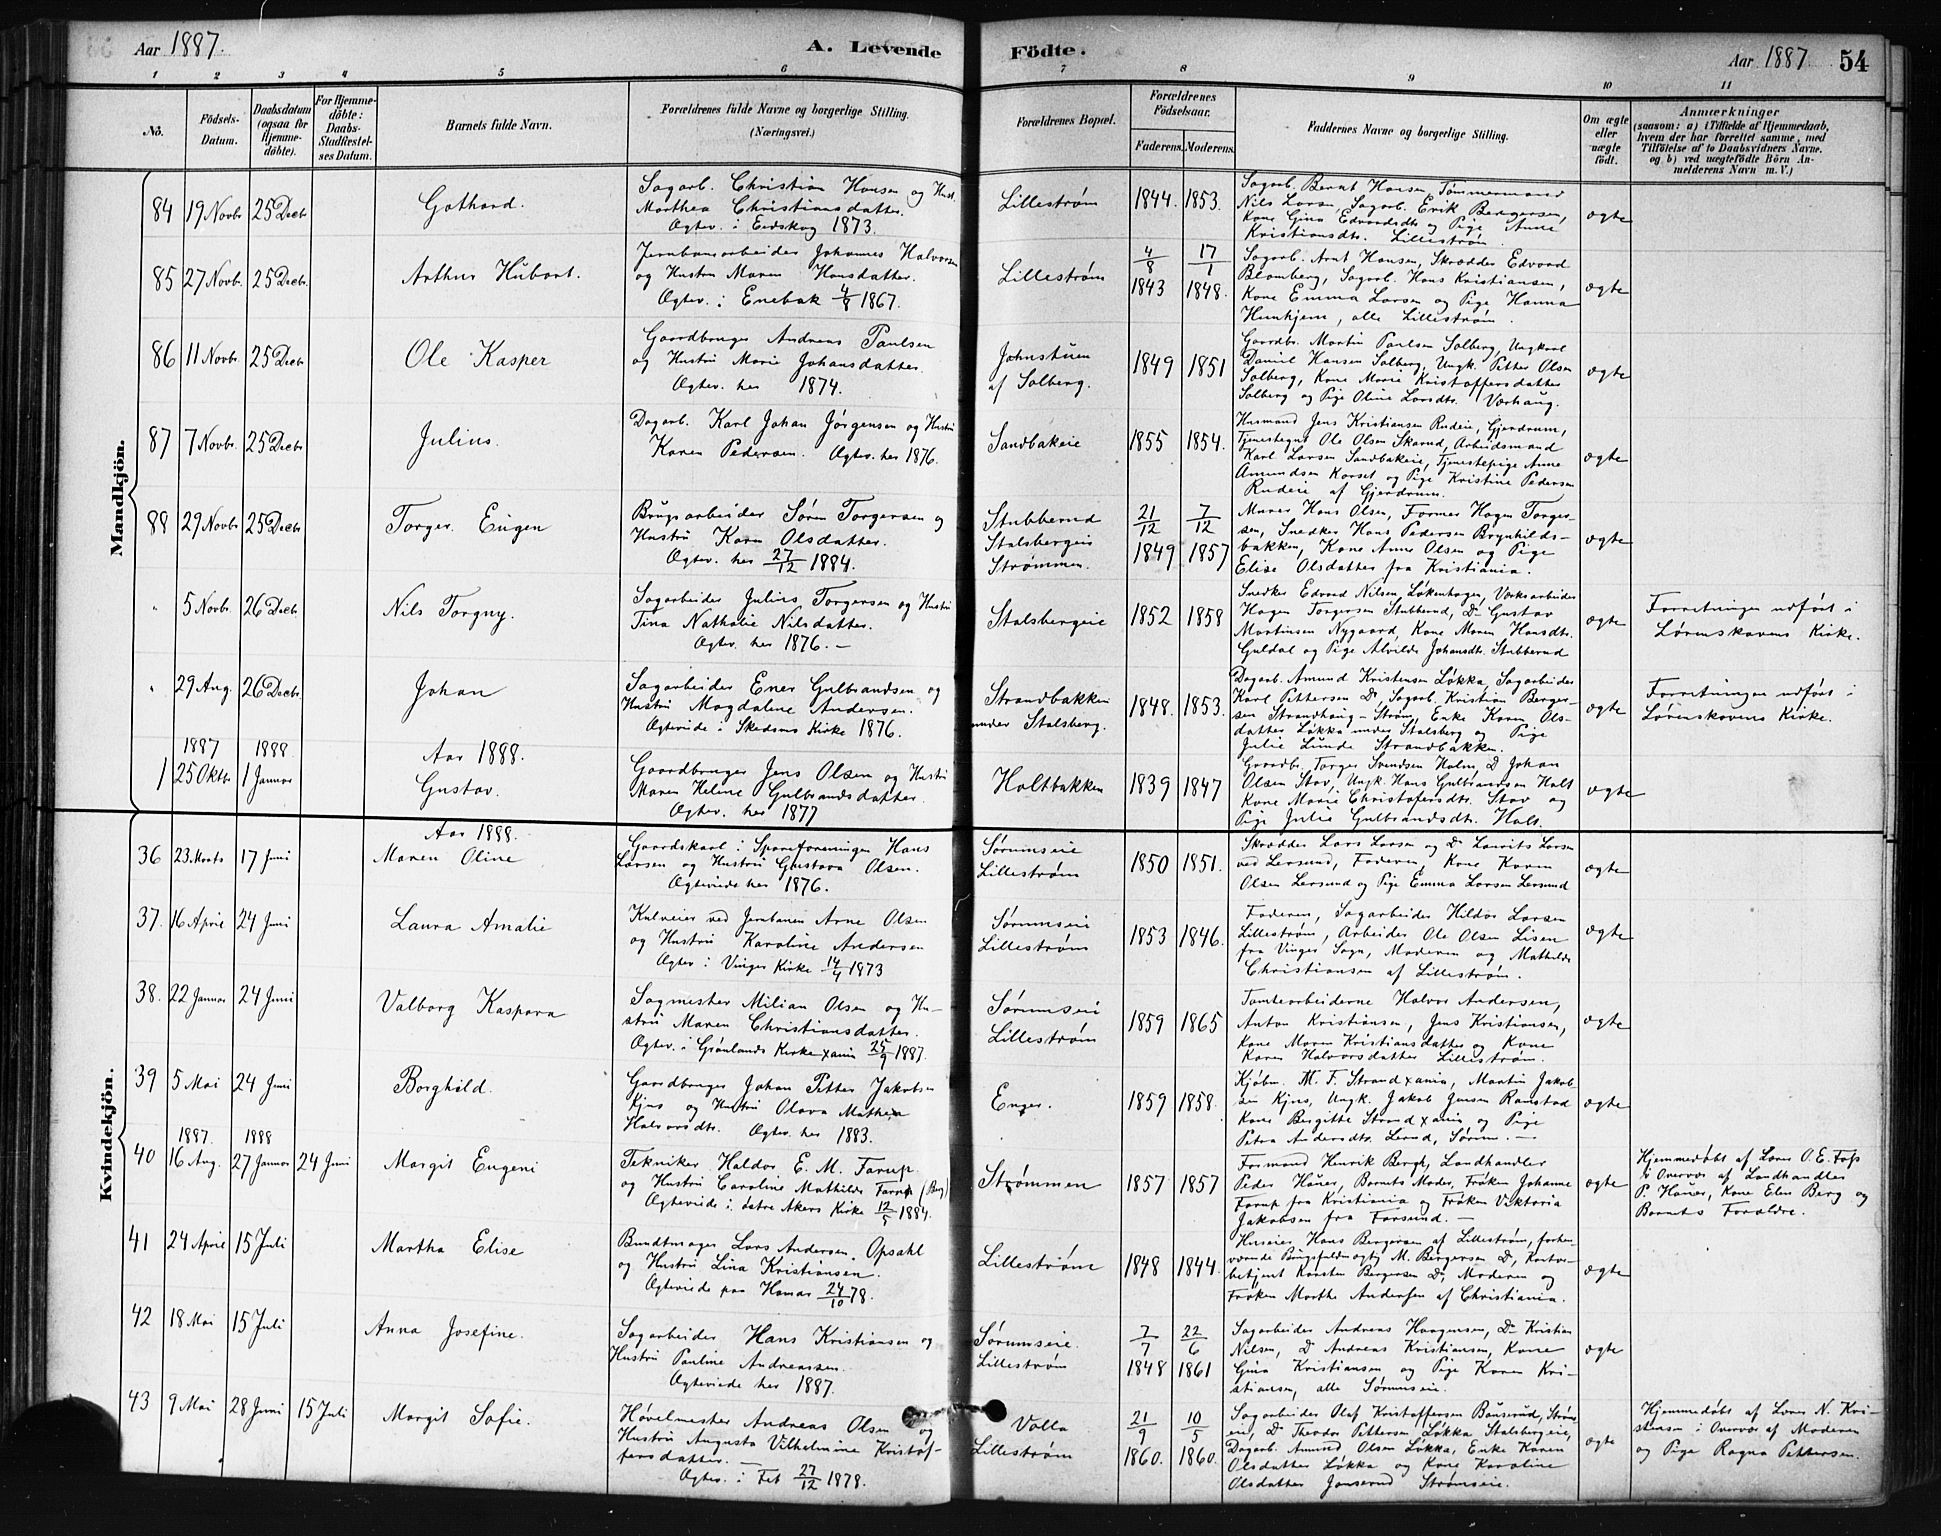 Aar 1887.
A. Levende
Födte.
Aar 1887.
54
1 2 3 4 5 6 7 8 9 10 11
No.
Födsels-Datum.
Daabsdatum (ogsaa for Hjemme-døbte).
For Hjemme-döbte: Daabs-Stadfæstel-ses Datum.
Barnets fulde Navn.
Forældrenes fulde Navne og borgerlige Stilling. (Næringsvei.)
Forældrenes Bopæl.
Forældrenes Födselsaar.
Faderens.
Moderens.
Faddernes Navne og borgerlige Stilling.
Om ægte eller uægte födt.
Anmærkninger
(saasom: a) i Tilfælde af Hjemmedaab,
hvem der har forrettet samme, med
Tilföielse af to Daabsvidners Navne,
og b) ved uægtefödte Börn An-
melderens Navn m. V.)
Mandkjön.
84 19 Novbr. 25 Decbr. Gothard.
Sagarb. Christian Hansen og Hust.
Marthea Christiansdatter.
Ægtev. i Eidskog 1873.
Lillestrøm 1844. 1853.
Sagarb. Bernt Hansen, Tømmermand
Nils Larsen, Sagarb. Erik Bergersen,
Kone Gina Edvardsdtr og Pige Anne
Kristiansdtr. Lillestrøm.
ægte
85 27 Novbr. 25 Decbr. Arthur Hübart.
Jernbanearbeider Johannes Halvorsen
og Hustru Maren Hansdatter.
Ægtev. i Enebak 4/8 1867.
Lillestrøm 4/8 1843 17/1 1848.
Sagarb. Arnt Hansen, Skrædder Edvard
Blomberg, Sagarb. Hans Kristiansen,
Kone Emma Larsen og Pige Hanna
alle Lillestrøm.
ægte
86 11 Novbr. 25 Decbr Ole Kasper
Gaardbruger Andreas Paulsen
og Hustru Marie Johansdatter.
Ægtev. her 1874.
Johnstuen
af Solberg.
1849 1851
Gaardbr. Martin Paulsen Solberg, Ungkarl
Daniel Hansen Solberg, Ungk. Petter Olsen
Solberg, Kone Marie Kristoffersdatter
Solberg og Pige Oline Larsdtr. Værhaug.
ægte
87 7 Novbr. 25 Decbr Julius.
Dagarb. Karl Johan Jørgensen og Hustru
Karen Pedersen. Ægtev. her 1876.
Sandbakeie 1855 1854.
Husmand Jens Kristiansen Rudeie, Gjerdrum,
Tjenestegut Ole Olsen Skarud, Arbeidsmand
Karl Larsen Sandbakeie, Tjenestepige Anne
Amundsen Korset og Pige Kristine Pedersen
Rudeie af Gjerdrum.
ægte
88 29 Novbr 25 Decbr Torger Eugen
Brugsarbeider Søren Torgersen og
Hustru Karen Olsdatter.
Ægtev. her 27/12 1884.
Stubberud
Stalsbergeie
Strømmen.
21/12 1849 7/12 1857
Murer Hans Olsen, Former Hagen Torger-
sen, Snedker Hans Pedersen Brynhilds-
bakken, Kone Anne Olsen og Pige
Elise Olsdatter fra Kristiania.
ægte
" 5 Novbr. 26 Decbr. Nils Torgny.
Sagarbeider Julius Torgersen og Hustru
Tina Nathalie Nilsdatter.
Ægtev. her 1876. —
Stalsbergeie 1852 1858
Snedker Edvard Nilsen Løkenhagen, Værksarbeider
Hagen Torgersen Stubberud, Do Gustav
Martinsen Nygaard, Kone Maren Hansdtr.
Guldal og Pige Alvilde Johansdtr. Stubberud
ægte
Forretningen udført i
Lørenskovens Kirke.
" 29 Aug. 26 Decbr Johan
Sagarbeider Ener Gulbrandsen og
Hustru Magdalene Andersen.
Ægteviede i Skedsmo Kirke 1876.
Strandbakken
under Stalsberg.
1848. 1853.
Dagarb. Amund Kristensen Løkka, Sagarbeider
Karl Pettersen Do Sagarb. Kristian Berger-
sen Strandhaug-Strøm, Enke Karen Ols-
datter Løkka under Stalsberg og Pige
Julie Lunde Strandbakken.
ægte
Forretningen udført i
Lørenskovens Kirke.
1887 1888 Aar 1888.
1 25 Oktbr 1 Januar Gustav.
Gaardbruger Jens Olsen og Hustru
Maren Heline Gulbrandsdatter.
Ægtev. her 1877
Holtbakken 1839 1847
Gaardbr. Torger Svendsen Holm, D Johan
Olsen Stav, Ungk. Hans Gulbrandsen Holt
Kone Marie Christofersdtr. Stav og
Pige Julie Gulbrandsdtr. Holt.
ægte
Kvindekjön.
Aar 1888.
36 23 Marts 17 Juni Maren Oline
Gaardskarl i Spareforeningen Hans
Larsen og Hustru Gustava Olsen.
Ægteviede her 1876.
Sørumseie
Lillestrøm
1850 1851.
Skrædder Lars Larsen og Do Laurits Larsen
ved Lersund, Faderen, Kone Karen
Olsen Lersund og Pige Emma Larsen Lersund
ægte
37. 16 April 24 Juni Laura Amalie
Kulveier ved Jernbanen Arne Olsen
og Hustru Karoline Andersen
Ægtev i Vinger Kirke 14/4 1873
Sørumseie
Lillestrøm
1853 1846.
Faderen, Sagarbeider Hildor Larsen
Lillestrøm, Arbeider Ole Olsen Lisen
fra Vinger Sogn, Moderen og Mathilde
Christiansen af Lillestrøm.
ægte
38. 22 Januar 24 Juni Valborg Kaspara
Sagmester Milian Olsen og Hu-
stru Maren Christiansdatter.
Ægtev. i Grønlands Kirke xania 25/9 1887.
Sørumseie
Lillestrøm
1859 1865
Tomtearbeiderne Halvor Andersen,
Anton Kristiansen, Jens Kristiansen,
Kone Maren Kristiansdatter og Kone
Karen Halvorsdatter Lillestrøm.
ægte
39 5 Mai 24 Juni Borghild.
Gaardbruger Johan Petter Jakobsen
Kjus og Hustru Olava Mathea
Halvorsdtr. Ægtev. her 1883.
Enger. 1859 1858.
Kjøbm. M. F. Strand xania, Martin Jakob-
sen Kjus, Ungk. Jakob Jensen Ramstad
Kone Bergitte Strand xania og Pige
Petra Andersdtr. Lerud, Sørum. —
ægte
1887. 1888
40 16 Aug. 27 Januar 24 Juni Margit Eugeni
Tekniker Haldor E. M. Farup
og Hustru Caroline Mathilde Farup (Berg)
Ægteviede i østre Akers Kirke 12/5 1884.
Strømmen 1857 1857
Formand Henrik Bergh, Landhandler
Peder Hauer, Barnets Moder, Frøken Johanne
Farup fra Kristiania og Frøken Viktoria
Jakobsen fra Farsund. —
ægte
Hjemmedøbt af Lærer O. E. Foss
i Overvær af Landhandler
P. Hauer, Kone Elen Berg og
Barnets Forældre.
41 24 April 15 Juli Martha Elise
Bundtmager Lars Andersen Opsahl
og Hustru Lina Kristiansen.
Ægteviede paa Hamar 24/10 78.
Lillestrøm 1848 1844.
Huseier Hans Bergersen af Lillestrøm, forhen-
værende Brugsfuldmægtig M. Bergersen Do, Kontor-
betjent Karsten Bergersen Do, Moderen og
Frøken Marthe Andersen af Christiania.
ægte
42 18 Mai 15 Juli Anna Josefine.
Sagarbeider Hans Kristiansen og
Hustru Pauline Andreassen.
Ægteviede her 1887.
Sørumseie.
Lillestrøm
7/7 1848 22/6 1861
Sagarbeider Andreas Haagensen, Do Kristian
Nilsen, Do Andreas Kristiansen, Kone
Gina Kristiansen og Pige Karen Kri-
stiansen, alle Sørumseie.
ægte
43 9 Mai 28 Juni 15 Juli Margit Sofie.
Høvelmester Andreas Olsen og
Hustru Augusta Vilhelmine Kristof-
fersdatter. —
Ægtev. i Fet 27/12 1878.
Volla
Lillestrøm
21/9 1860. 10/5 1860.
Sagarbeider Olaf Kristoffersen Strøms-
eie, Do Theodor Pettersen Løkka Stalsbergeie,
Dagarb. Amund Olsen Løkka, Enke Karen
Olsdatter Løkka og Kone Karoline
Olsdatter Jonsrud Strømseie.
ægte
Hjemmedøbt af Lærer N. Kri-
stensen i Overvær af Moderen
og Pige Ragna Pettersen.